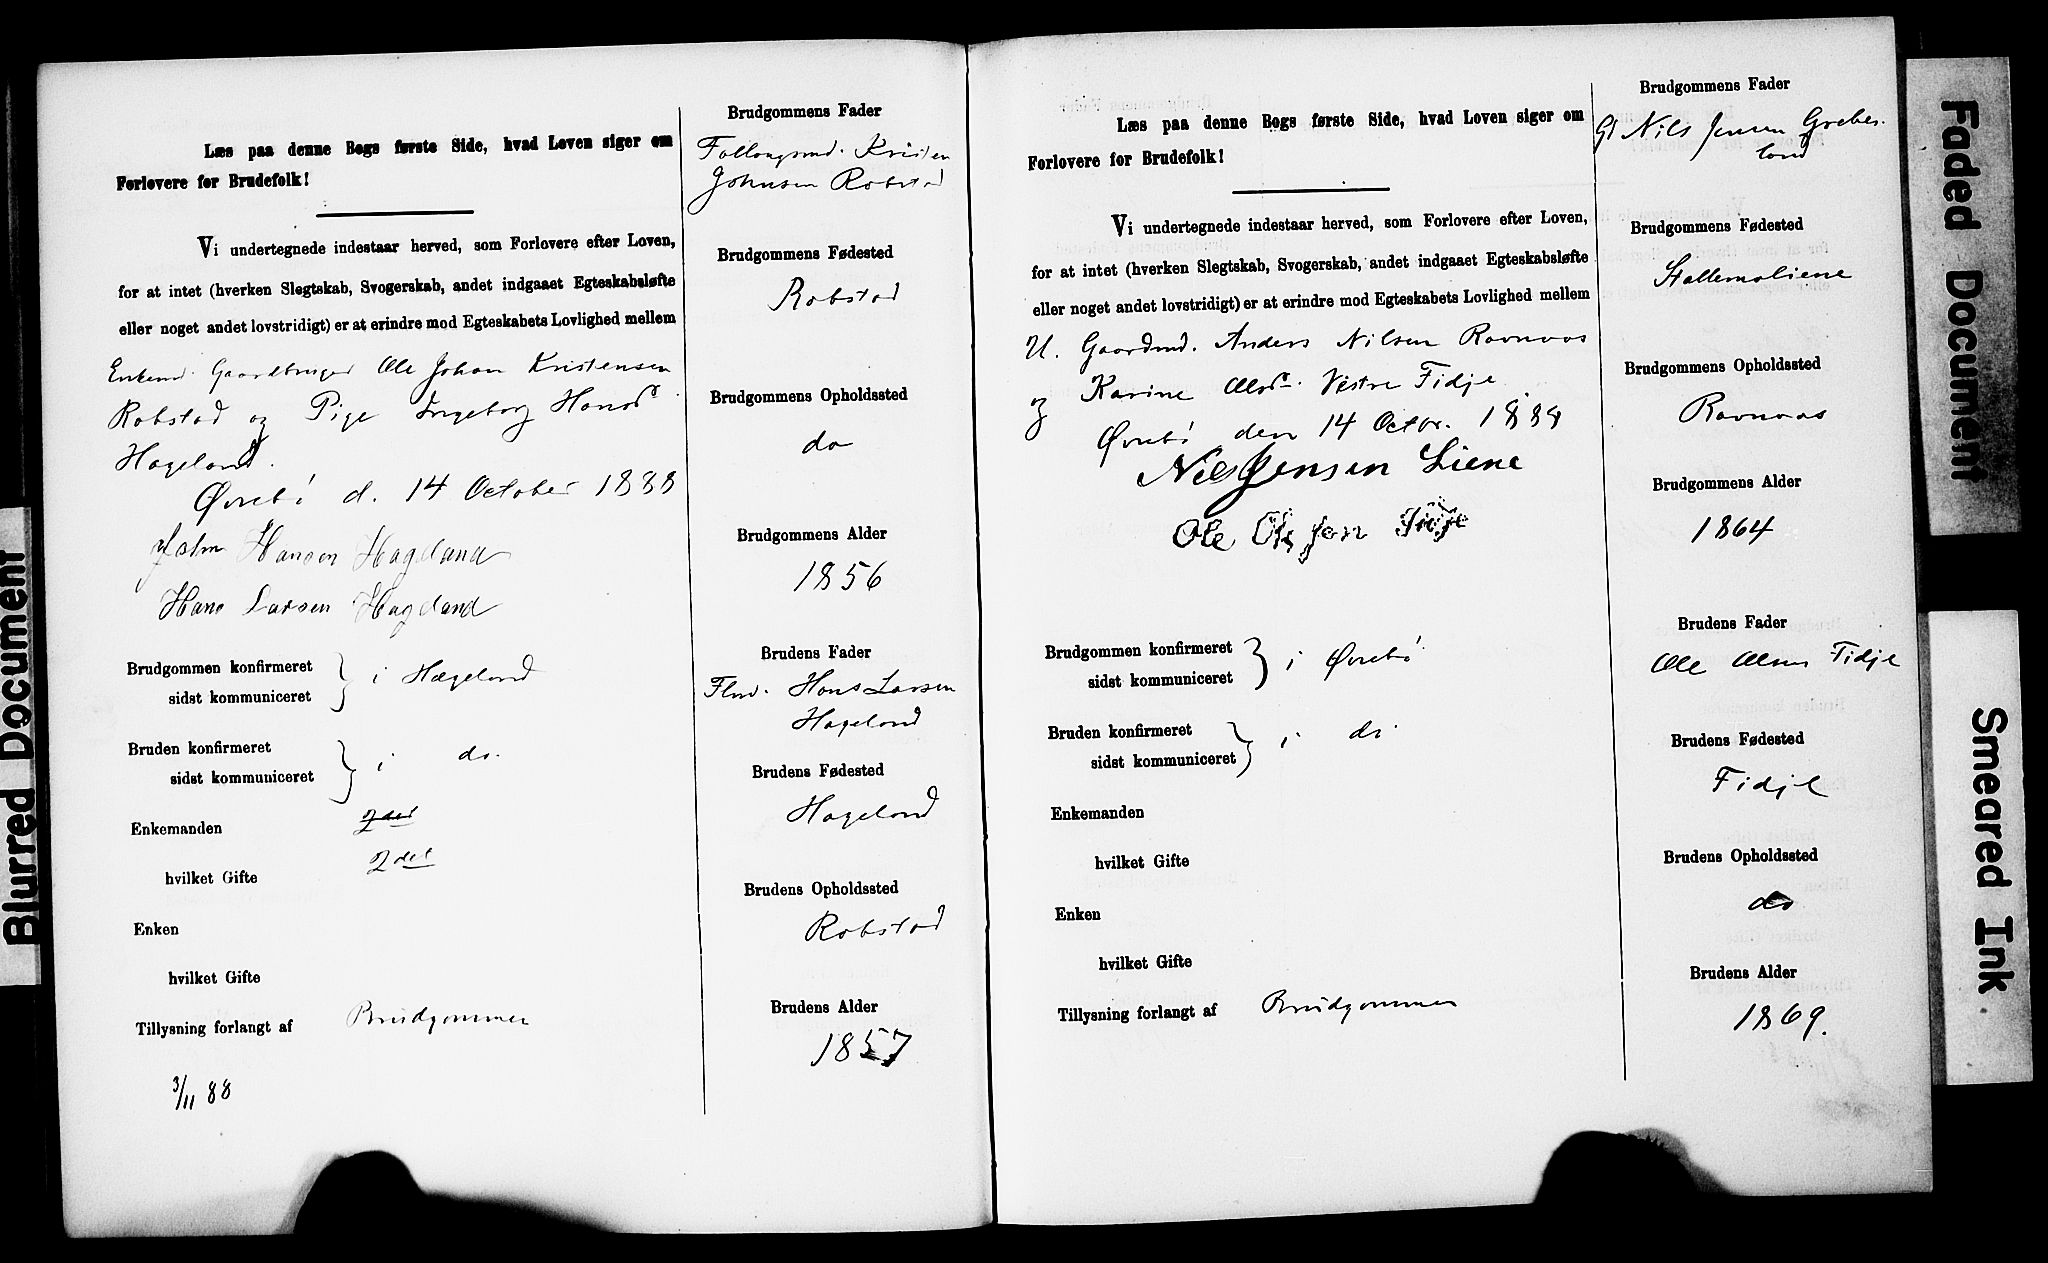 Læs paa denne Bogs første Side, hvad Loven siger om
Forlovere for Brudefolk!
Vi undertegnede indestaar herved, som Forlovere efter Loven,
for at intet (hverken Slegtskab, Svogerskab, andet indgaaet Egteskabsløfte
eller noget andet lovstridigt) er at erindre mod Egteskabets Lovlighed mellem
Enkem. Gaardbruger Ole Johan Kristensen
Robstad og Pige Ingeborg Hansd.
Hageland.
Øvrebö d. 14 October 1888
Hansen Hageland
Hans Larsen Hageland
Brudgommen konfirmeret
sidst kommuniceret
i Hægeland
Bruden konfirmeret
sidst kommuniceret
i do.
Enkemanden 2det
hvilket Gifte 2det
Enken
hvilket Gifte
Tillysning forlangt af Brudgommen
3/11 88
Brudgommens Fader
Kristen
Johnsen Robstad
Brudgommens Fødested
Robstad
Brudgommens Opholdssted
do
Brudgommens Alder
1856
Brudens Fader
Hans Larsen
Hageland
Brudens Fødested
Hageland
Brudens Opholdssted
Robstad
Brudens Alder
1857
Læs paa denne Bogs første Side, hvad Loven siger om
Forlovere for Brudefolk!
Vi undertegnede indestaar herved, som Forlovere efter Loven,
for at intet (hverken Slegtskab, Svogerskab, andet indgaaet Egteskabsløfte
eller noget andet lovstridigt) er at erindre mod Egteskabets Lovlighed mellem
U. Gaardmd. Anders Nilsen Ravnaas
og Karine Olsd. Vestre Fidje
Øvrebö den 14 Octbr. 1888
Nils Jensen Liene
Ole Olsen Fidje
Brudgommen konfirmeret
sidst kommuniceret
i Øvrebö
Bruden konfirmeret
sidst kommuniceret
i do.
Enkemanden
hvilket Gifte
Enken
hvilket Gifte
Tillysning forlangt af Brudgommen
Brudgommens Fader
Nils Jensen Grebes-
land
Brudgommens Fødested
Stallemoliene
Brudgommens Opholdssted
Ravnaas
Brudgommens Alder
1864
Brudens Fader
Ole Olsen Fidje
Brudens Fødested
Fidje
Brudens Opholdssted
do
Brudens Alder
1869.
Blurred Document
Faded Document
Smeared Ink